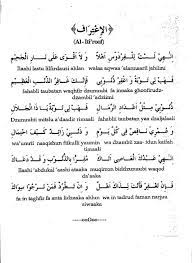 ﴿الْإِعْتِرَافُ﴾
(Al-I'tirof)
إِلٰهِيْ لَسْتُ لِلْفِرْدَوْسِ أَهْلًا وَلَا أَقْوَى عَلَى نَارِ الْجَحِيْمِ
ilaahi lastu lilfirdausi ahlan walaa aqwaa 'alannaaril jahiimi
فَهَبْ لِيْ تَوْبَةً وَاغْفِرْ ذُنُوْبِيْ فَإِنَّكَ غَافِرُ الذَّنْبِ الْعَظِيْمِ
fahablii taubatan waghfir dzunuubii fa innaka ghoofirudz-
dzambil 'adziimi
ذُنُوْبِيْ مِثْلُ أَعْدَادِ الرِّمَالِ فَهَبْ لِيْ تَوْبَةً يَا ذَا الْجَلَالِ
Dzunuubii mitslu a'daadir rimaali fahablii taubatan yaa dzaljalaali
وَعُمْرِيْ نَاقِصٌ فِيْ كُلِّ يَوْمٍ وَذَنْبِيْ زَائِدٌ كَيْفَ احْتِمَالِيْ
wa'umrii naaqishun fikulli yaumin wa dzambii zaa-idun kaifah
timaali
إِلٰهِيْ عَبْدُكَ الْعَاصِيْ أَتَاكَ مُقِرًّا بِالذُّنُوْبِ وَقَدْ دَعَاكَ
ilaahi 'abdukal 'aashi ataaka muqirran bidzdzunuubi waqod
da'aaka
فَإِنْ تَغْفِرْ فَأَنْتَ لِذَاكَ أَهْلٌ وَإِنْ تَطْرُدْ فَمَنْ نَرْجُو سِوَاكَ
fa in taghfir fa anta lidzaaka ahlun wa in tadrud faman narjuu
siwaaka